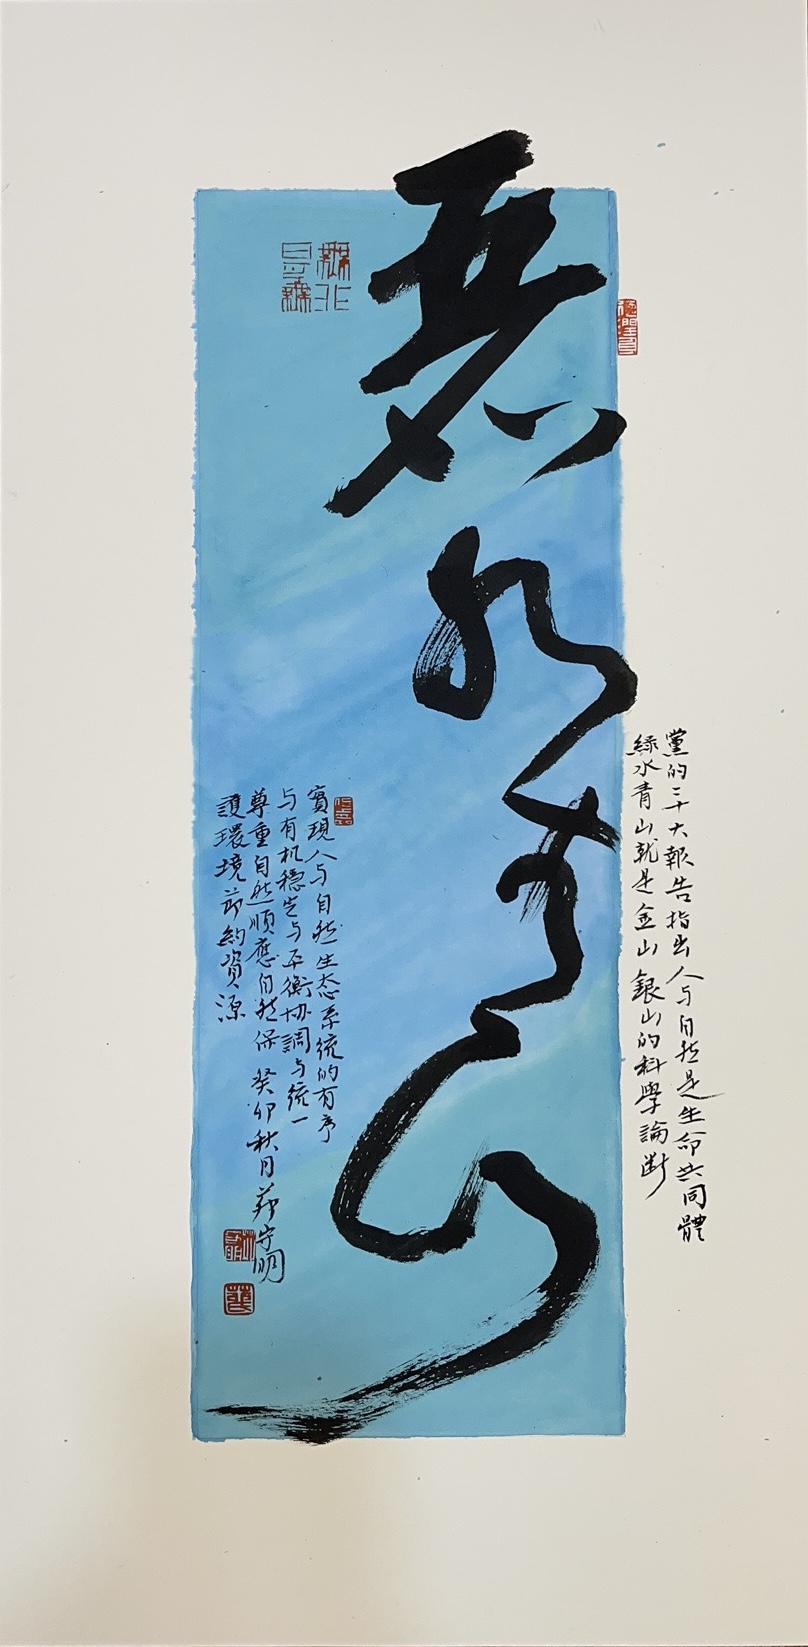 碧水青山
黨的二十大報告指出人与自然是生命共同體
緑水青山就是金山銀山的科學論斷
實現人与自然生态系统的有序
与有机稳定与平衡协調与统一
尊重自然順應自然保
護環境节約資源
癸卯秋月